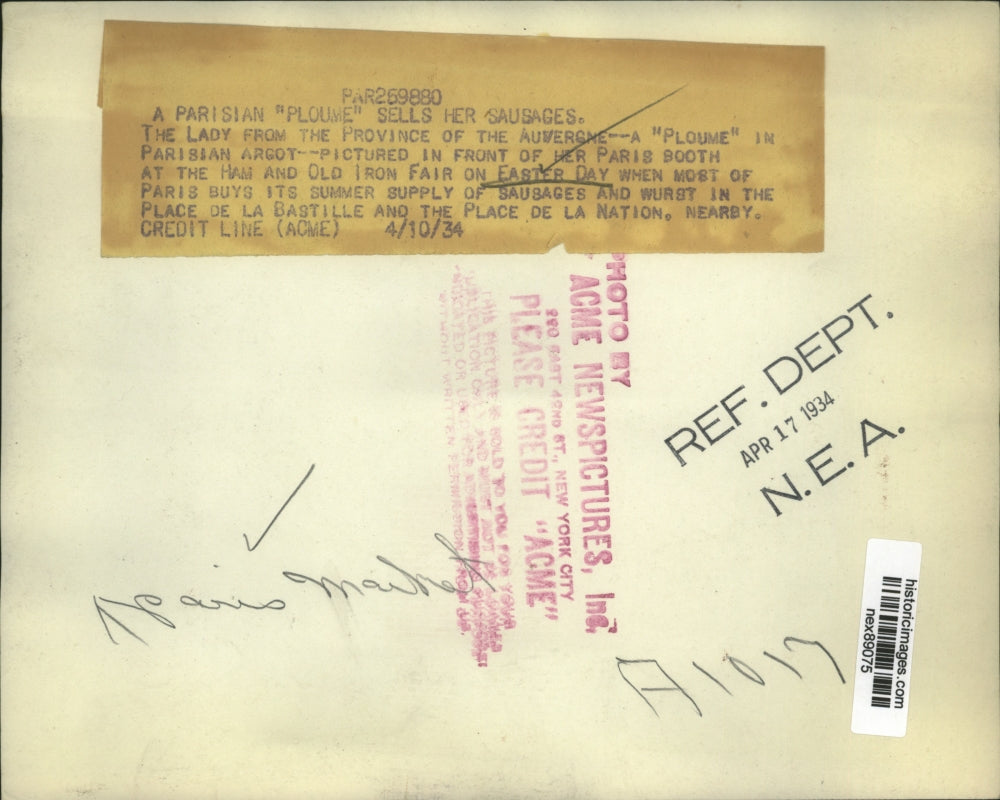 PAR269880
A PARISIAN "PLOUME" SELLS HER SAUSAGES.
THE LADY FROM THE PROVINCE OF THE AUVERGNE--A "PLOUME" IN
PARISIAN ARGOT--PICTURED IN FRONT OF HER PARIS BOOTH
AT THE HAM AND OLD IRON FAIR ON EASTER DAY WHEN MOST OF
PARIS BUYS ITS SUMMER SUPPLY OF SAUSAGES AND WURST IN THE
PLACE DE LA BASTILLE AND THE PLACE DE LA NATION, NEARBY.
CREDIT LINE (ACME) 4/10/34
PHOTO BY
ACME NEWSPICTURES, Inc.
220 EAST 42ND ST., NEW YORK CITY
PLEASE CREDIT "ACME"
THIS PICTURE IS SOLD TO YOU FOR YOUR
PUBLICATION ONLY AND MUST NOT BE
WITHOUT WRITTEN PERMISSION FROM US.
REF. DEPT.
APR 17 1934
N. E. A.
Paris Market
A1017
historicimages.com
nex89075